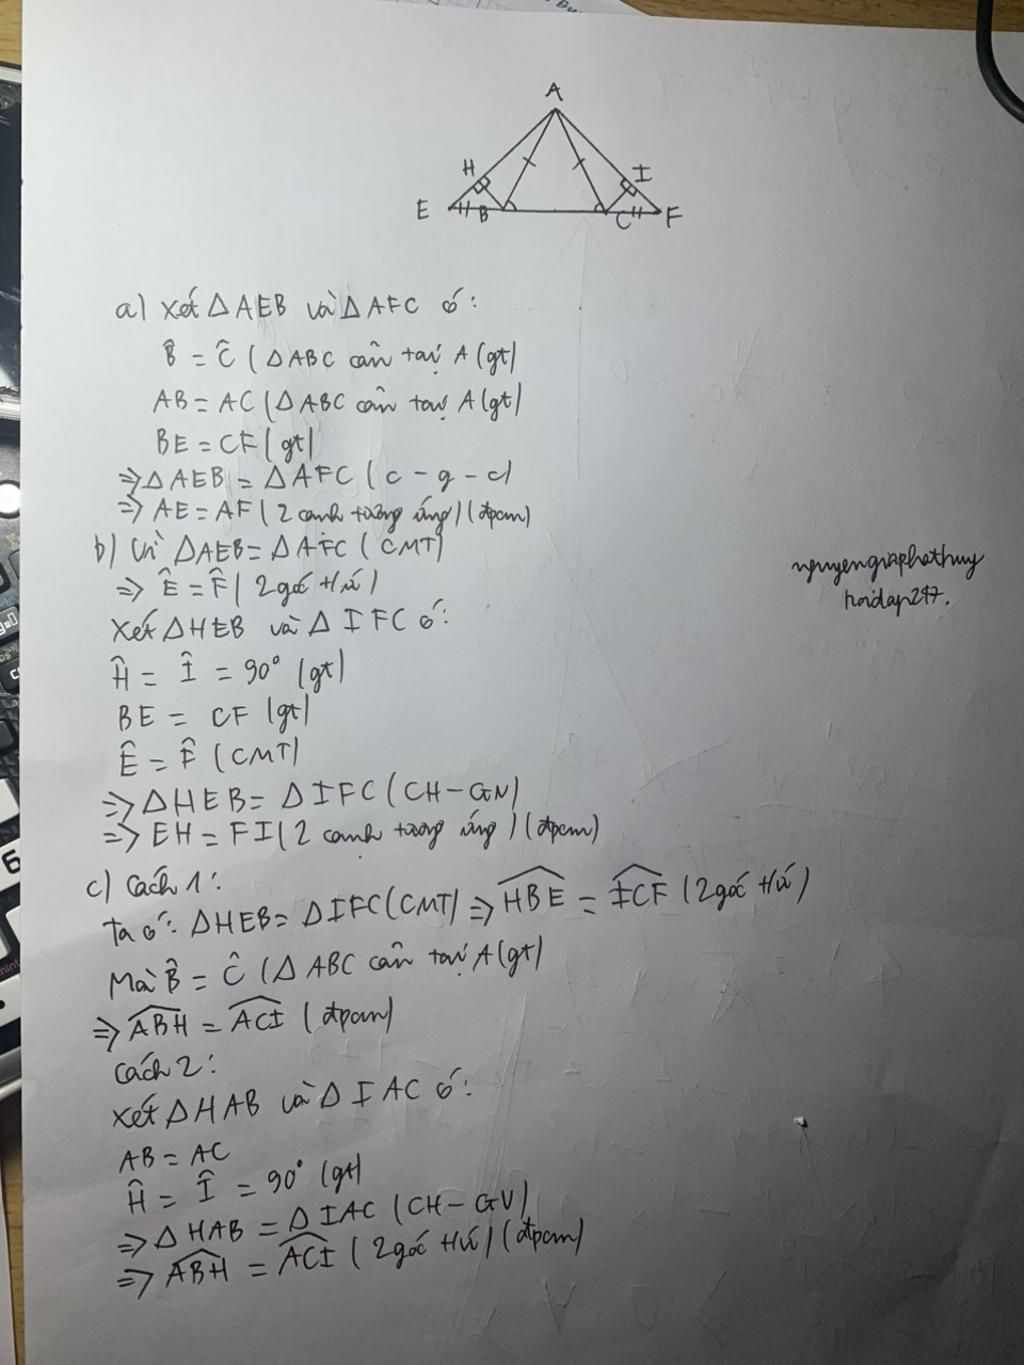 A
H
I
E
B
C
F
a) Xét ΔAEB và ΔAFC có:
B̂ = Ĉ (ΔABC cân tại A (gt)
AB = AC (ΔABC cân tại A (gt)
BE = CF (gt)
⇒ ΔAEB = ΔAFC (c - g - c)
⇒ AE = AF (2 cạnh tương ứng) (đpcm)
b) Vì ΔAEB = ΔAFC (CMT)
⇒ Ê = F̂ (2 góc t/ứ)
Xét ΔHEB và ΔIFC có:
Ĥ = Î = 90° (gt)
BE = CF (gt)
Ê = F̂ (CMT)
⇒ ΔHEB = ΔIFC (CH - GN)
⇒ EH = FI (2 cạnh tương ứng) (đpcm)
nguyengiaphathuy
hoidap247.
c) Cách 1:
Ta có: ΔHEB = ΔIFC (CMT) ⇒ \widehat{HBE} = \widehat{ICF} (2 góc t/ứ)
Mà B̂ = Ĉ (ΔABC cân tại A (gt)
⇒ \widehat{ABH} = \widehat{ACI} (đpcm)
Cách 2:
Xét ΔHAB và ΔIAC có:
AB = AC
Ĥ = Î = 90° (gt)
⇒ ΔHAB = ΔIAC (CH - GV)
⇒ \widehat{ABH} = \widehat{ACI} (2 góc t/ứ) (đpcm)